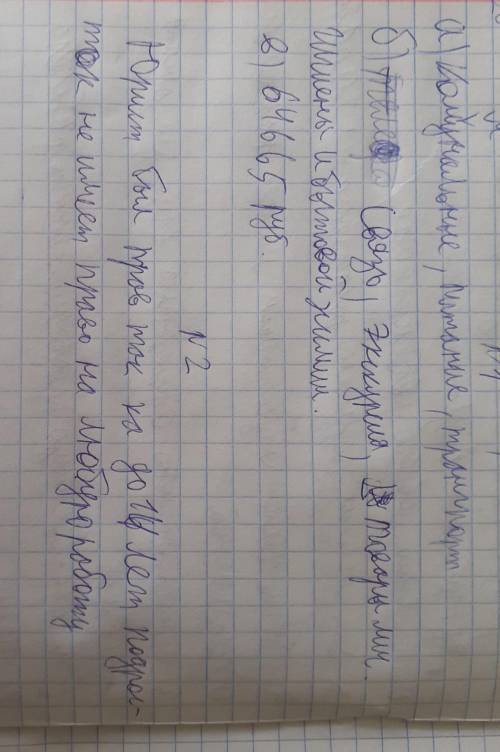 N1
а) Комунальные, питание, транспорт
б) Связь, Экскурсия, товары лич.
гигиены и бытовой химии.
в) 64665 руб.
N2
Юрист был прав так ка до 14 лет подрос-
ток не имеет право на любую работу